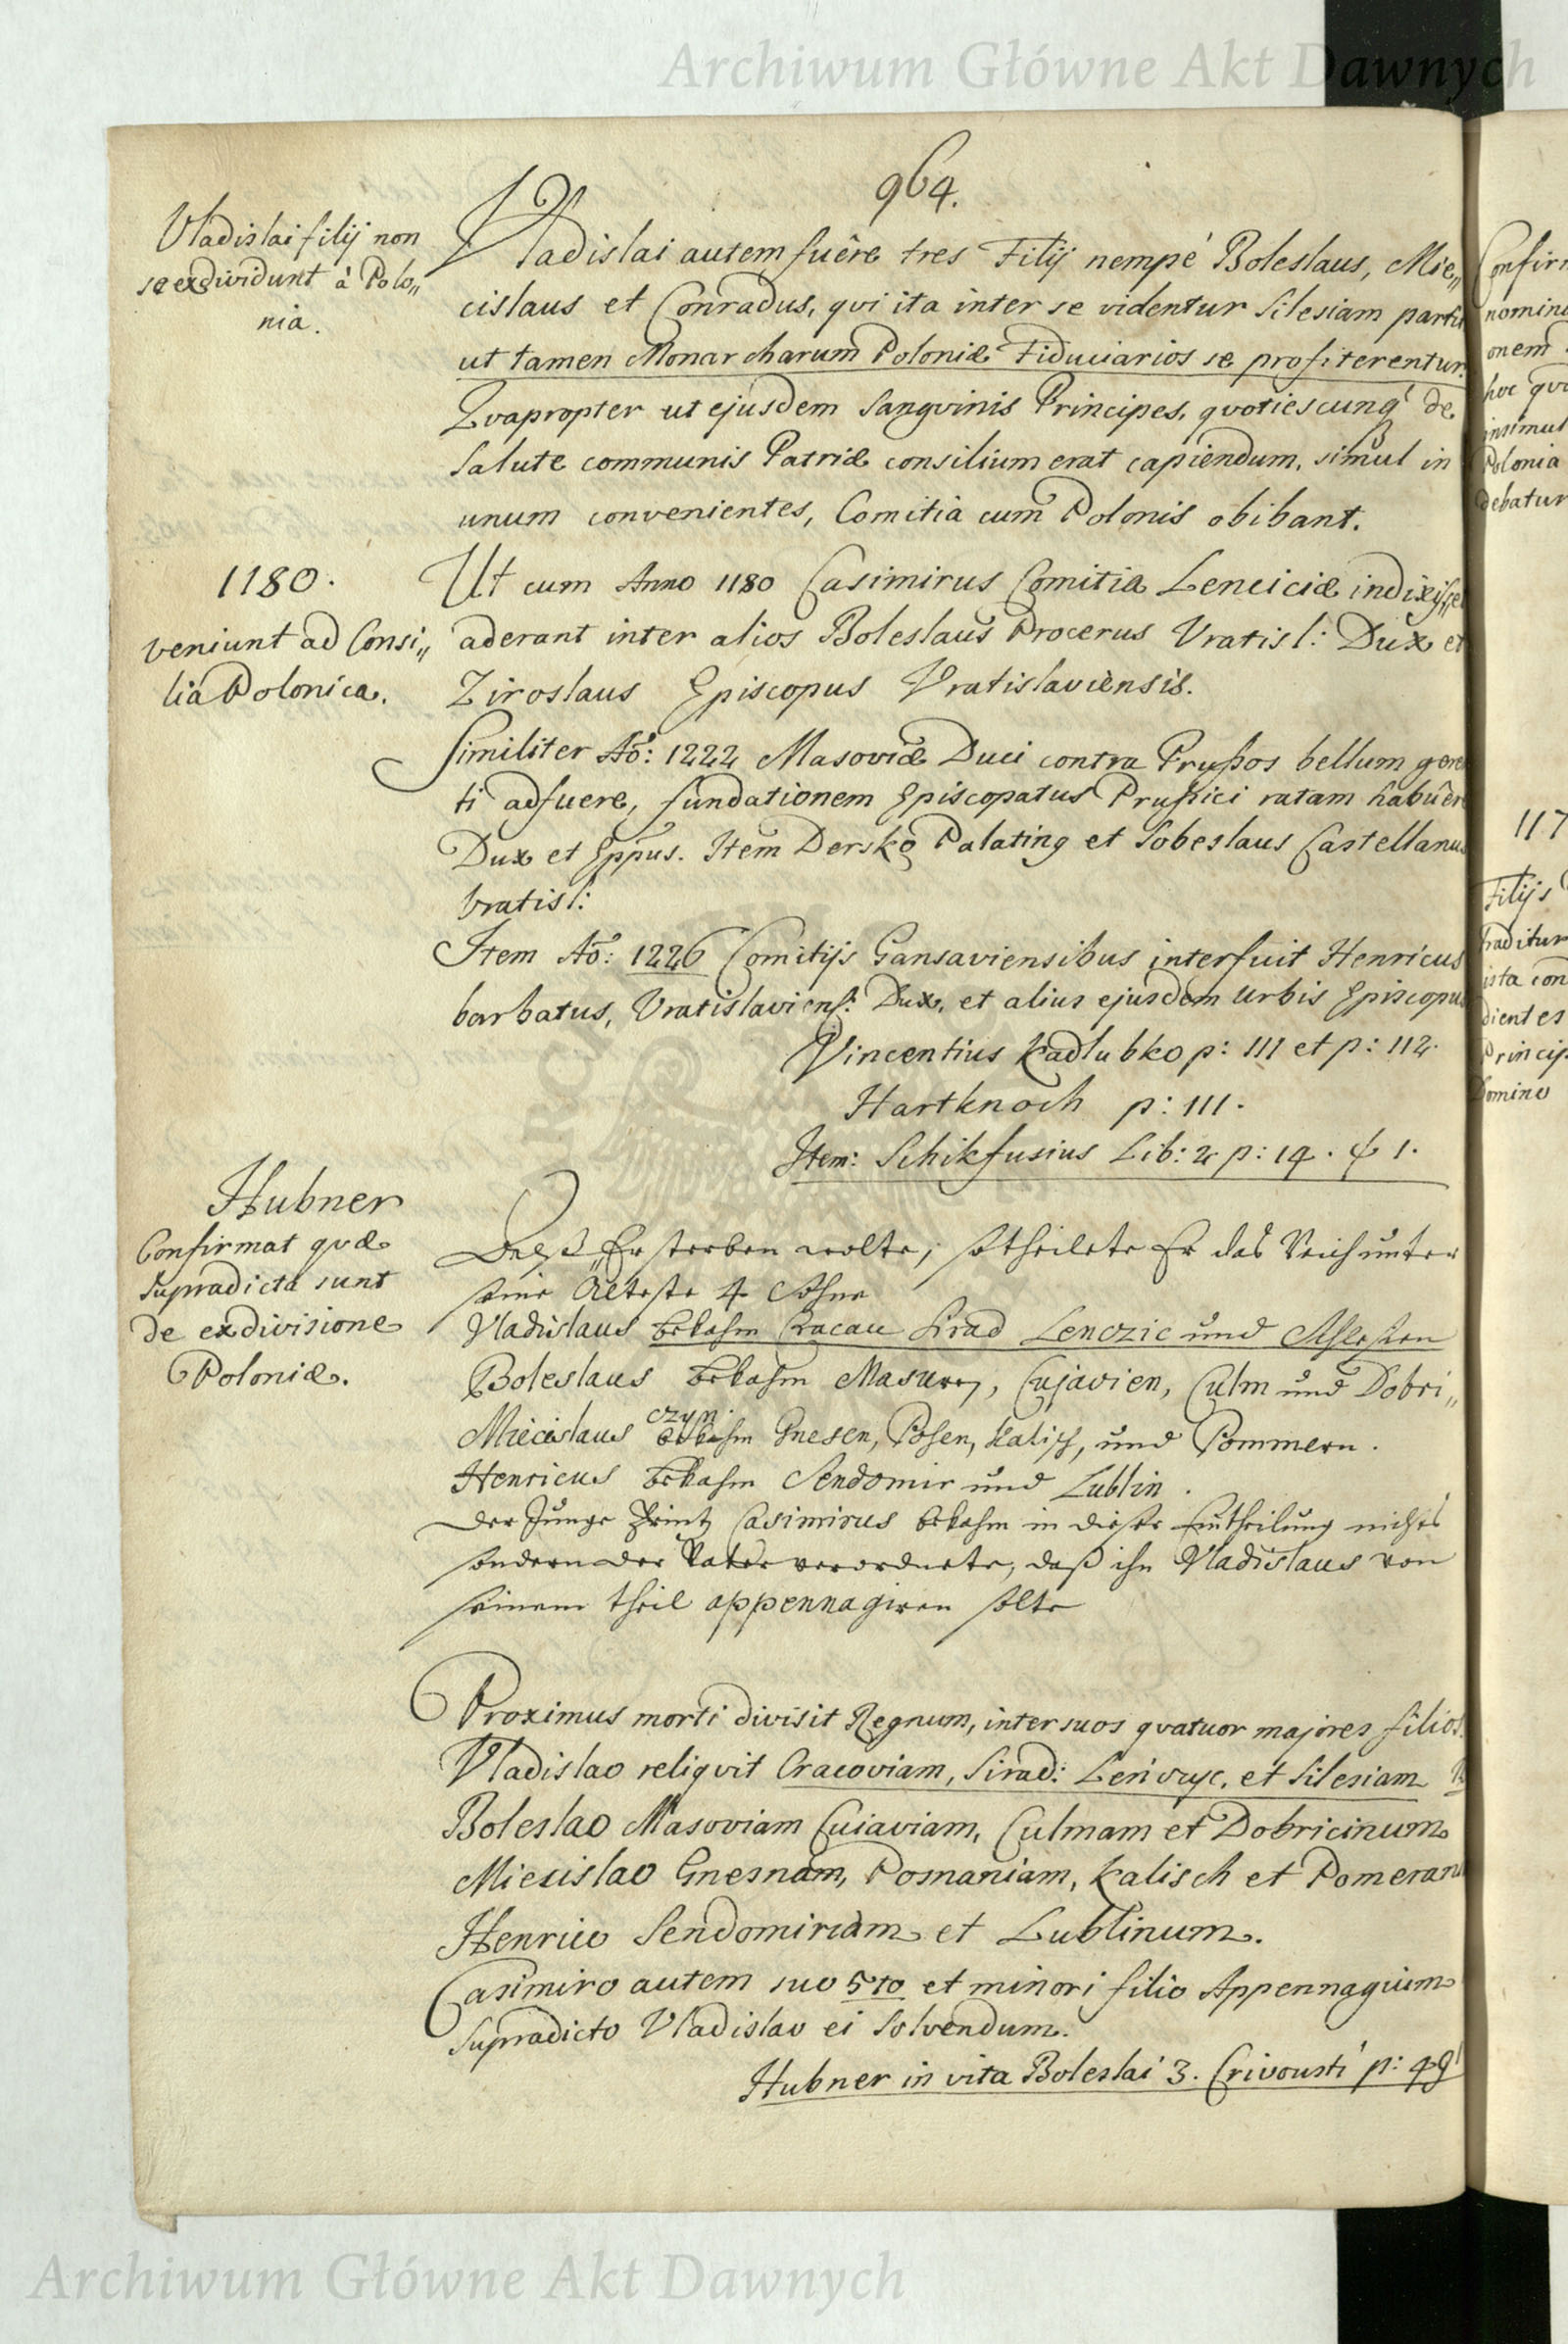 Archiwum Główne Akt Dawnych
964.
Vladislai filij non
se exdividunt à Polo„
nia.
Vladislai autem fuêre tres Filij nempé Boleslaus, Mie„
cislaus et Conradus, qvi ita inter se videntur Silesiam partiti
ut tamen Monarcharum Poloniæ Fiduciarios se profiterentur.
Qvapropter ut ejusdem Sangvinis Principes, qvotiescunq' de
Salute communis Patriæ consilium erat capiendum, simul in
unum convenientes, Comitia cum Polonis obibant.
1180.
veniunt ad Consi„
lia Polonica.
Ut cum Anno 1180 Casimirus Comitia Lenciciæ indixisset
aderant inter alios Boleslaus Procerus Vratisl: Dux et
Ziroslaus Episcopus Vratislaviensis.
Similiter Aô: 1222 Masoviæ Duci contra Prussos bellum geren
ti adfuere, fundationem Episcopatus Prussici ratam habuêre
Dux et Eppus. Item Dersko Palating et Sobeslaus Castellanus
Vratisl:
Item Aô: 1226 Comitijs Gansaviensibus interfuit Henricus
barbatus, Vratislaviens: Dux, et alius ejusdem Urbis Episcopus
Vincentius Kadlubko p: 111 et p: 112.
Hartknoch p: 111.
Item: Schikfusius Lib: 2 p: 14. & 1.
Hubner
Confirmat qvæ
Supradicta sunt
de exdivisione
Poloniæ.
Er sterben wolte, so theilete Er das Reich unter
seine Älteste 4 Söhne
Vladislaus bekahm Cracau Sirad Lenczic und Schlesien
Boleslaus bekahm Masuren, Cujavien, Culm und Dobri„
czyn.
Miecislaus bekahm Gnesen, Posen, Kalisch, und Pommern.
Henricus bekahm Sendomir und Lublin.
Der Junge Printz Casimirus bekahm in dieser Eintheilung nichts
sondern der Vater verordnete, daß ihn Vladislaus von
seinem theil appennagiren solte
Proximus morti divisit Regnum, inter suos qvatuor majores filios.
Vladislao reliqvit Cracoviam, Sirad: Lenczyc, et Silesiam
Boleslao Masoviam Cuiaviam, Culmam et Dobricinum
Miecislao Gnesnam, Posnaniam, Kalisch et Pomeran
Henrico Sendomiriam et Lublinum.
Casimiro autem suo 5to et minori filio Appennagium
Supradicto Vladislao ei Solvendum.
Hubner in vita Boleslai 3. Crivousti p: 49
Confirm
nomine
onem
hoc qvi
insimul
Polonia
debatur
117
Filijs
traditur
ista con
dientes
Princip
Domino
Archiwum Główne Akt Dawnych